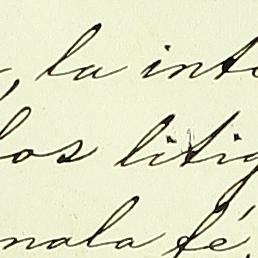 , la inte
los litig
mala fé